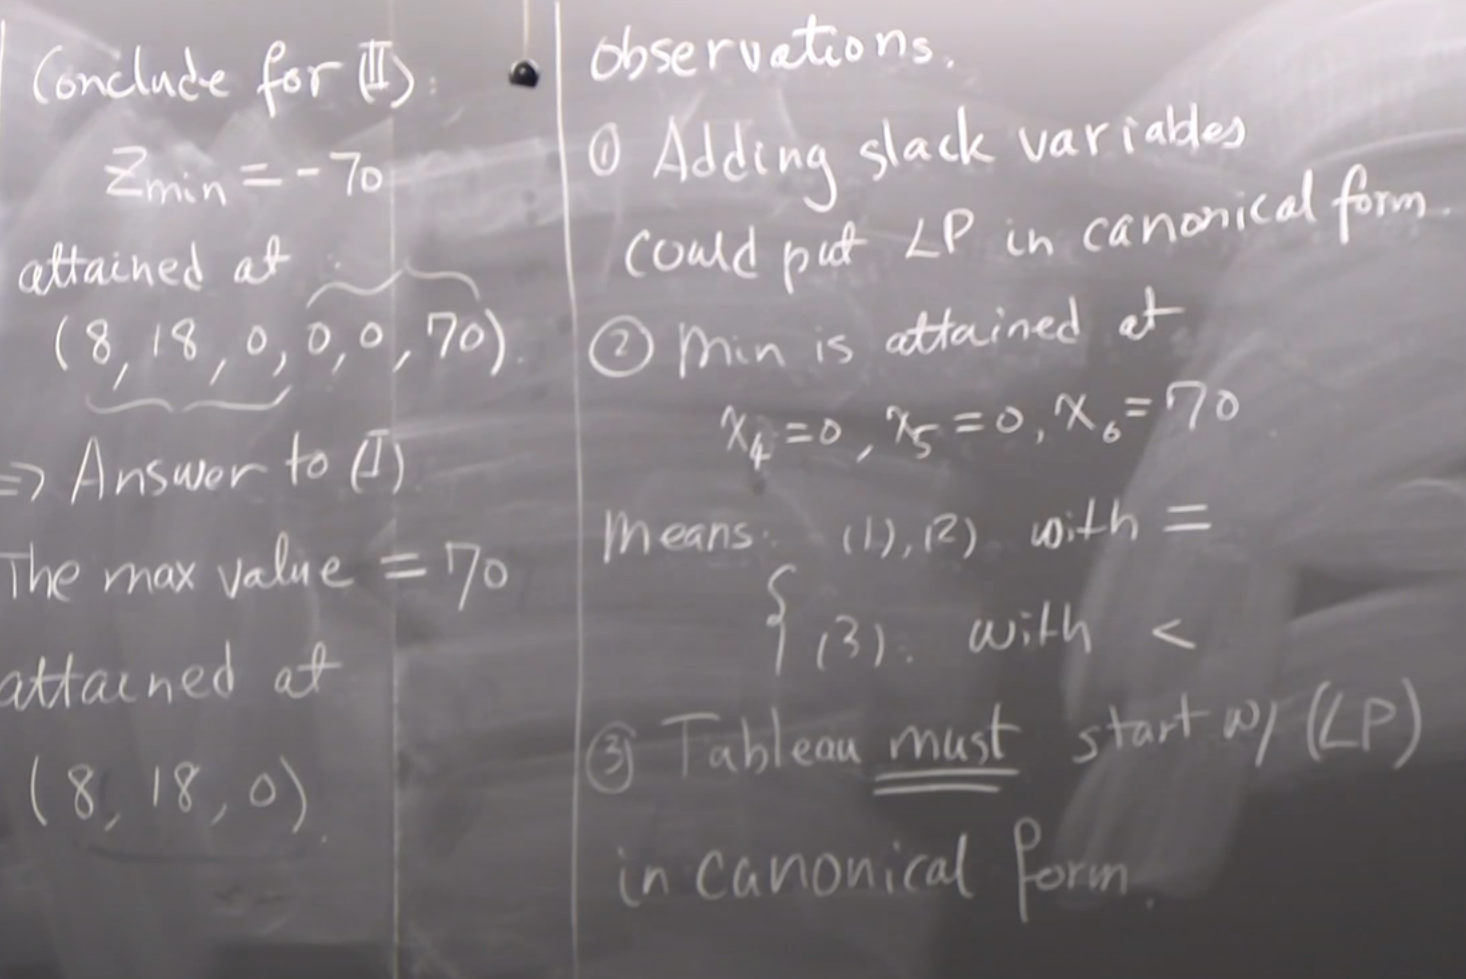 Conclude for (II):
Zmin = -70
attained at
(8, 18, 0, 0, 0, 70).
=> Answer to (I)
The max value = 70
attained at
(8, 18, 0).
observations.
① Adding slack variables
could put LP in canonical form.
② min is attained at
x₄ = 0, x₅ = 0, x₆ = 70
means: (1), (2) with =
{ (3): with <
③ Tableau must start w/ (LP)
in canonical form.